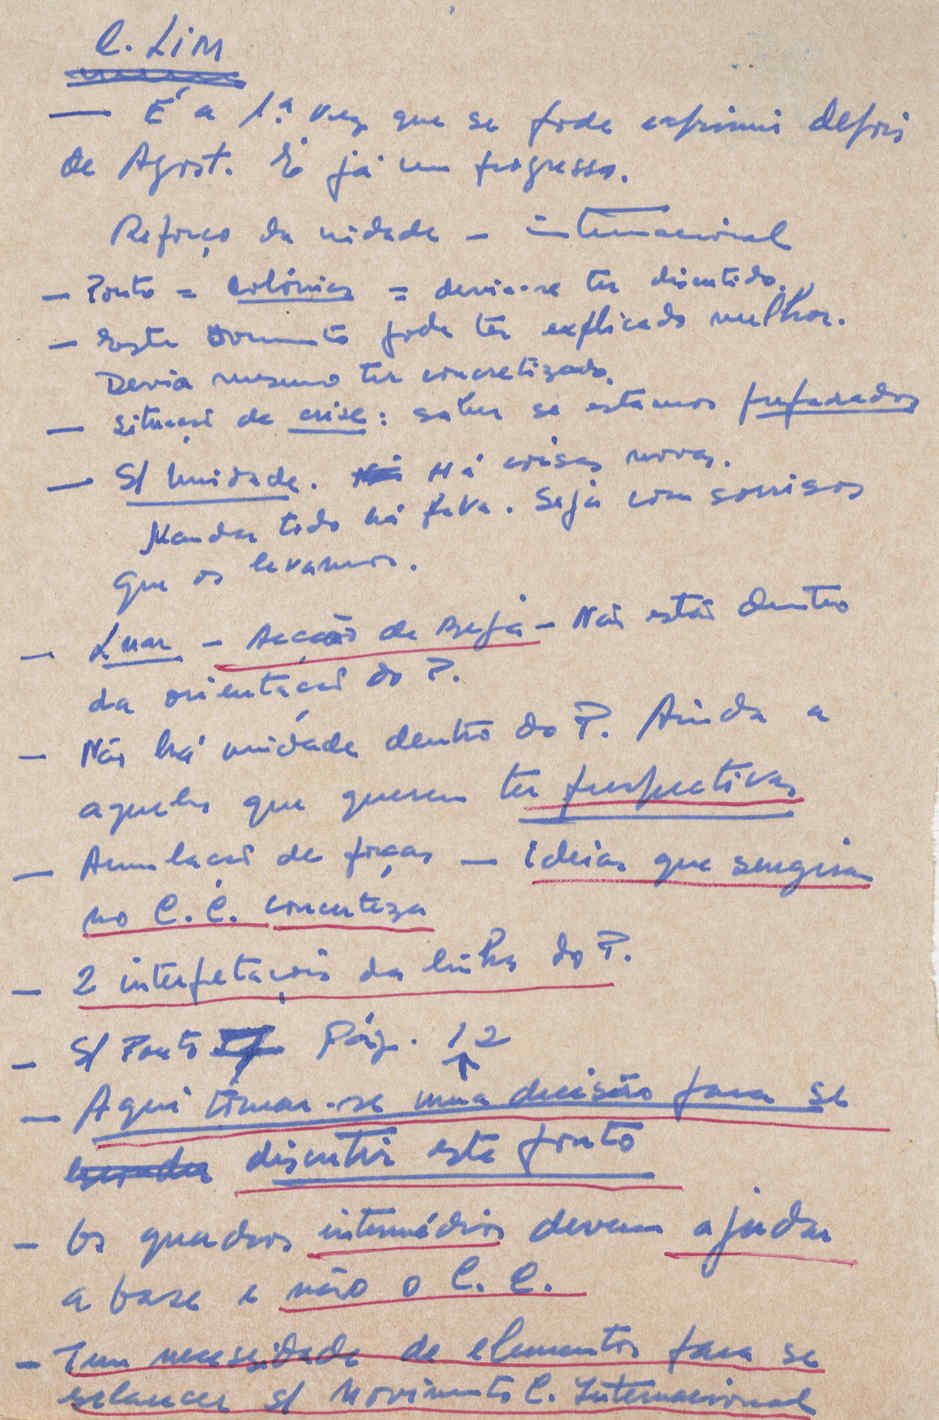 C. Lim
— É a 1.ª vez que se pode exprimir depois
de Agost. E já um progresso.
Reforço da unidade — internacional
— Ponto = Colónias = devia-se ter discutido.
— Este Documento pode ter explicado melhor.
Devia mesmo ter concretizado.
— Situação de crise: saber se estamos preparados
— S/ Unidade. Há crises novas.
Mandar tudo há fava. Seja com sorrisos
que os levamos.
— Luar — Acção de Beja — Não estão dentro
da orientação do P.
— Não há unidade dentro do P. Ainda a
aqueles que querem ter perspectivas
— Anulação de forças — Ideias que surgiram
no C.C. concerteza
— 2 interpetações da linha do P.
— S/ Ponto Pág. 12
— Aqui tomar-se uma decisão para se
discutir este ponto
— Os quadros intermédios devem ajudar
a base e não o C.C.
— Tem necessidade de elementos para se
esclarecer s/ Movimento C. Internacional